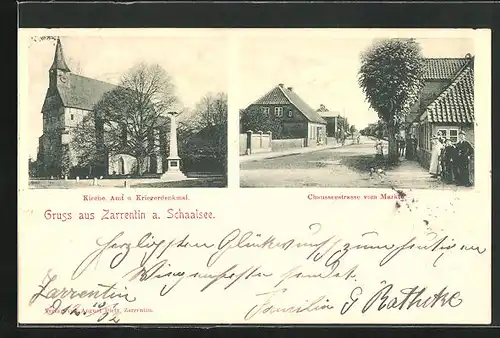 Kirche, Amt u. Kriegerdenkmal.
Chausseestrasse vom Markt
Gruss aus Zarrentin a. Schaalsee.
Herzlichsten Glückwunsch zum heutigen
Wiegenfeste sendet
Zarrentin
Familie G Rathcke
Zarrentin.